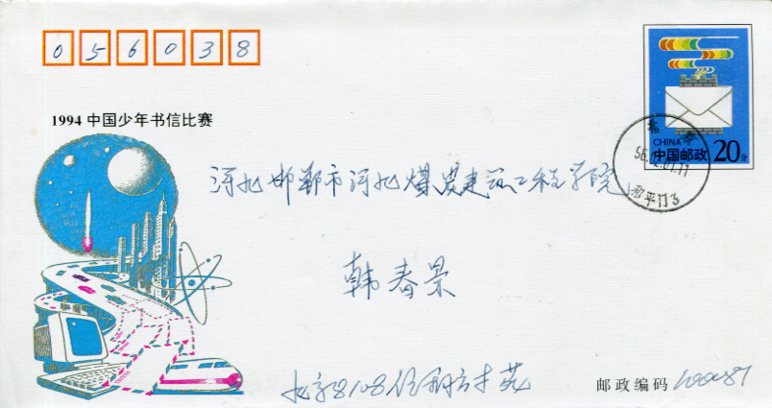 056038
CHINA
中国邮政 20分
1994 中国少年书信比赛
北京
和平门3
河北邯郸市河北煤炭建筑工程学院
韩春景
北京8108信箱
邮政编码 100081